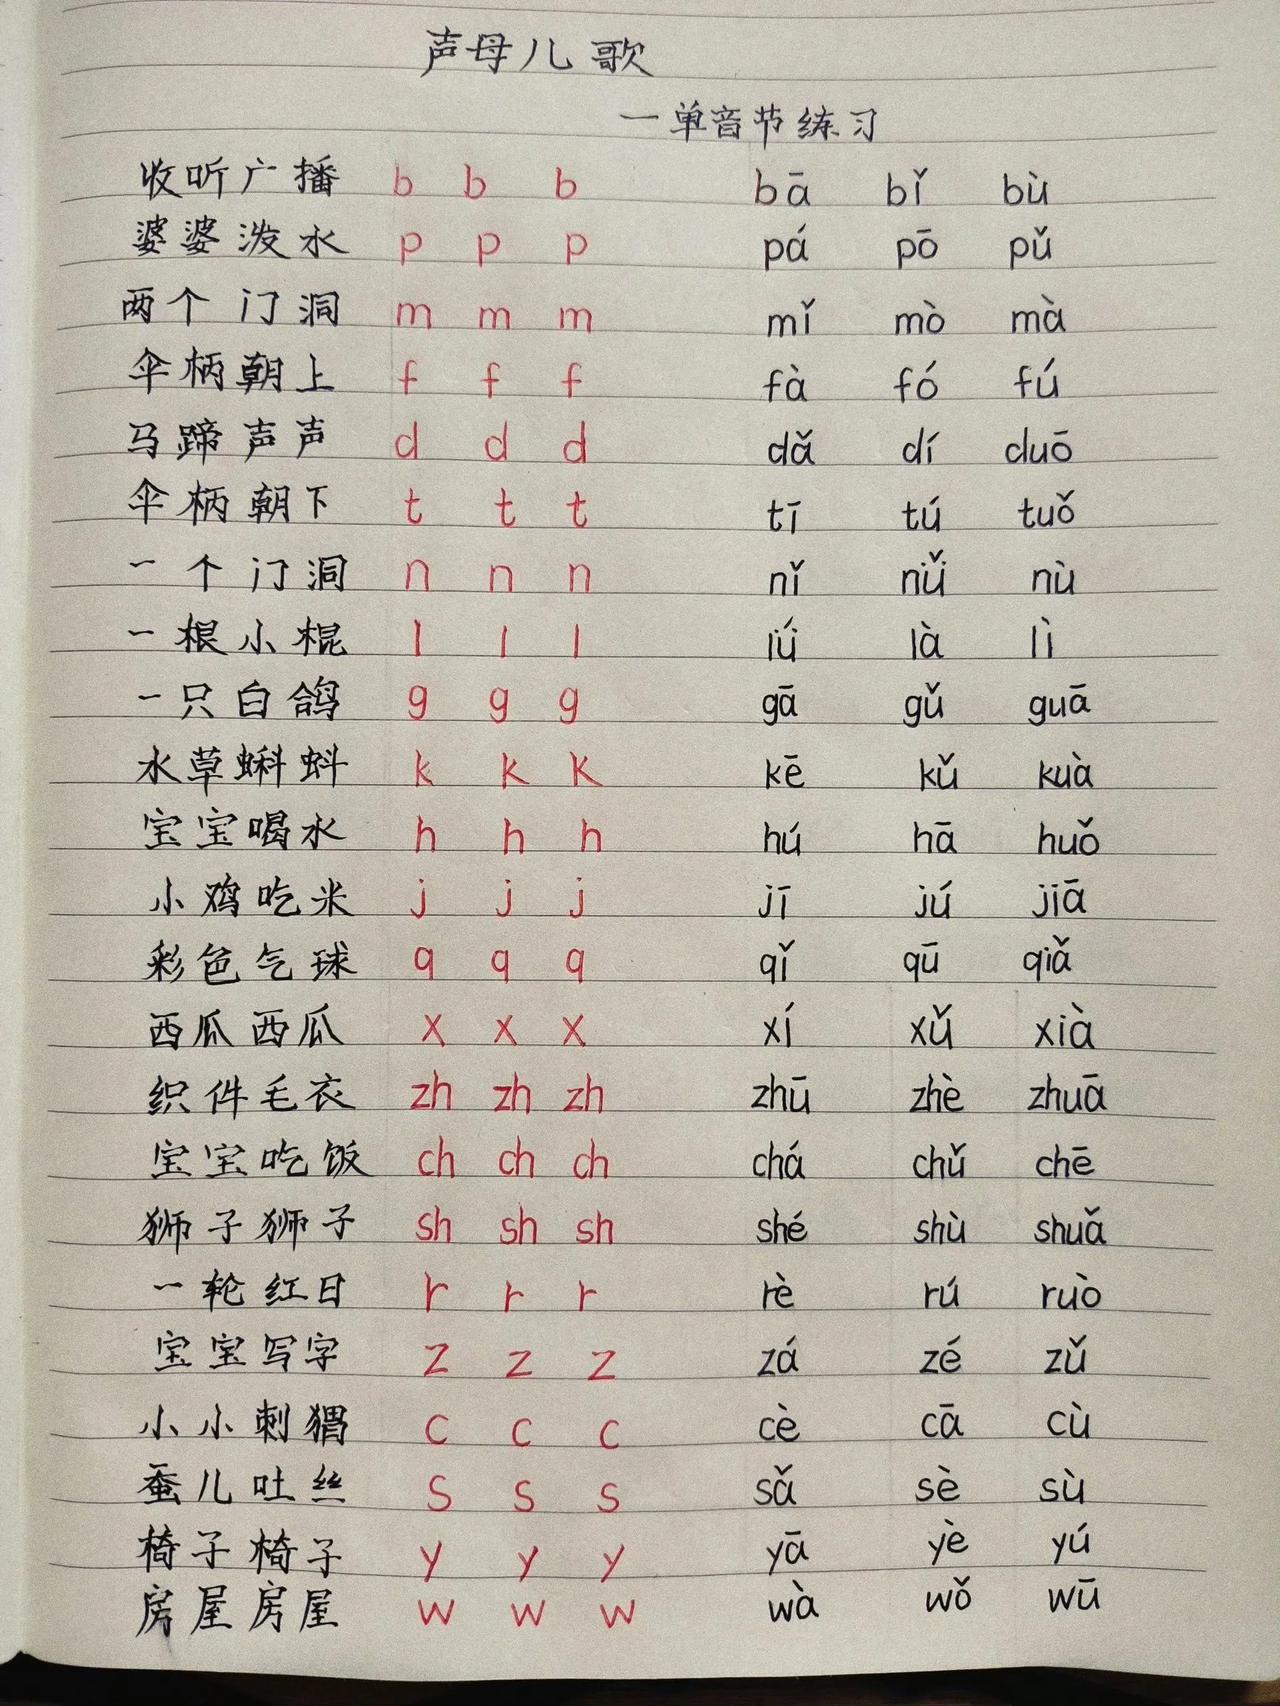 声母儿歌
一单音节练习
收听广播 b b b bā bǐ bù
婆婆泼水 p p p pá pō pǔ
两个门洞 m m m mǐ mò mà
伞柄朝上 f f f fà fó fú
马蹄声声 d d d dǎ dí duō
伞柄朝下 t t t tī tú tuǒ
一个门洞 n n n nǐ nǚ nù
一根小棍 l l l lǘ là lì
一只白鸽 g g g gā gǔ guā
水草蝌蚪 k k k kē kǔ kuà
宝宝喝水 h h h hú hā huǒ
小鸡吃米 j j j jī jú jiā
彩色气球 q q q qǐ qū qiǎ
西瓜西瓜 x x x xí xǔ xià
织件毛衣 zh zh zh zhū zhè zhuā
宝宝吃饭 ch ch ch chá chǔ chē
狮子狮子 sh sh sh shé shù shuǎ
一轮红日 r r r rè rú ruò
宝宝写字 z z z zá zé zǔ
小小刺猬 c c c cè cā cù
蚕儿吐丝 s s s sǎ sè sù
椅子椅子 y y y yā yè yú
房屋房屋 w w w wà wǒ wū